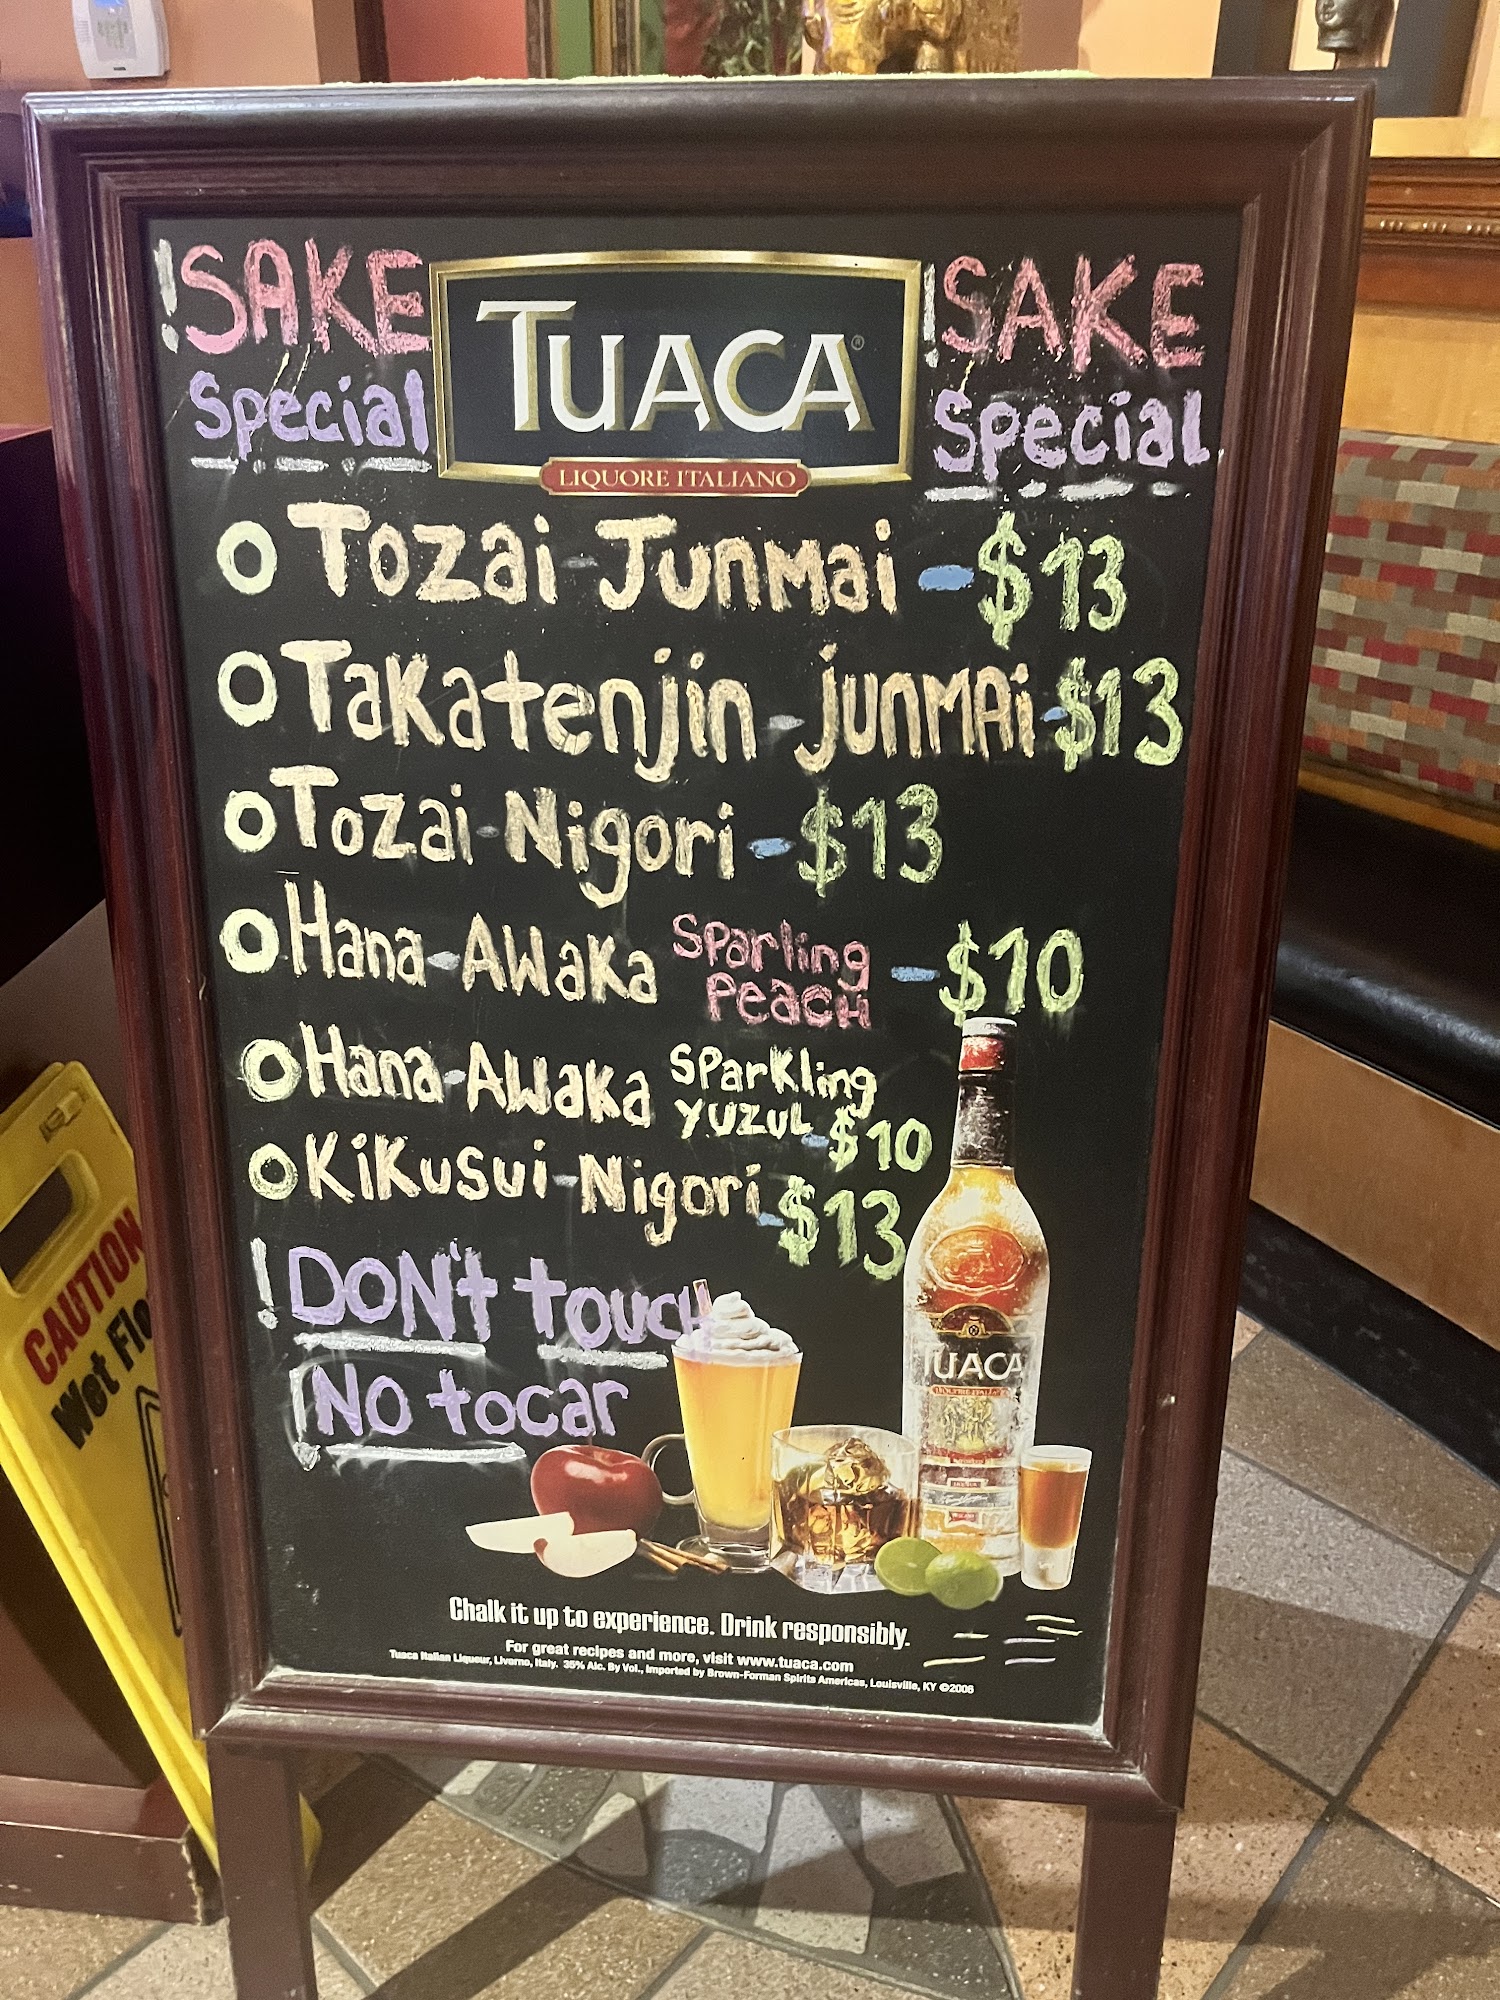 !SAKE
Special
TUACA®
LIQUORE ITALIANO
!SAKE
Special
Tozai-Junmai - $13
Takatenjin - junmai - $13
Tozai-Nigori - $13
Hana-Awaka Sparling PEACH - $10
Hana-Awaka Sparkling YUZUL - $10
Kikusui-Nigori - $13
!DON't touch
¡No tocar
TUACA
Chalk it up to experience. Drink responsibly.
For great recipes and more, visit www.tuaca.com
Tuaca Italian Liqueur, Livorno, Italy. 35% Alc. By Vol., Imported by Brown-Forman Spirits Americas, Louisville, KY ©2006
CAUTION
Wet Flo